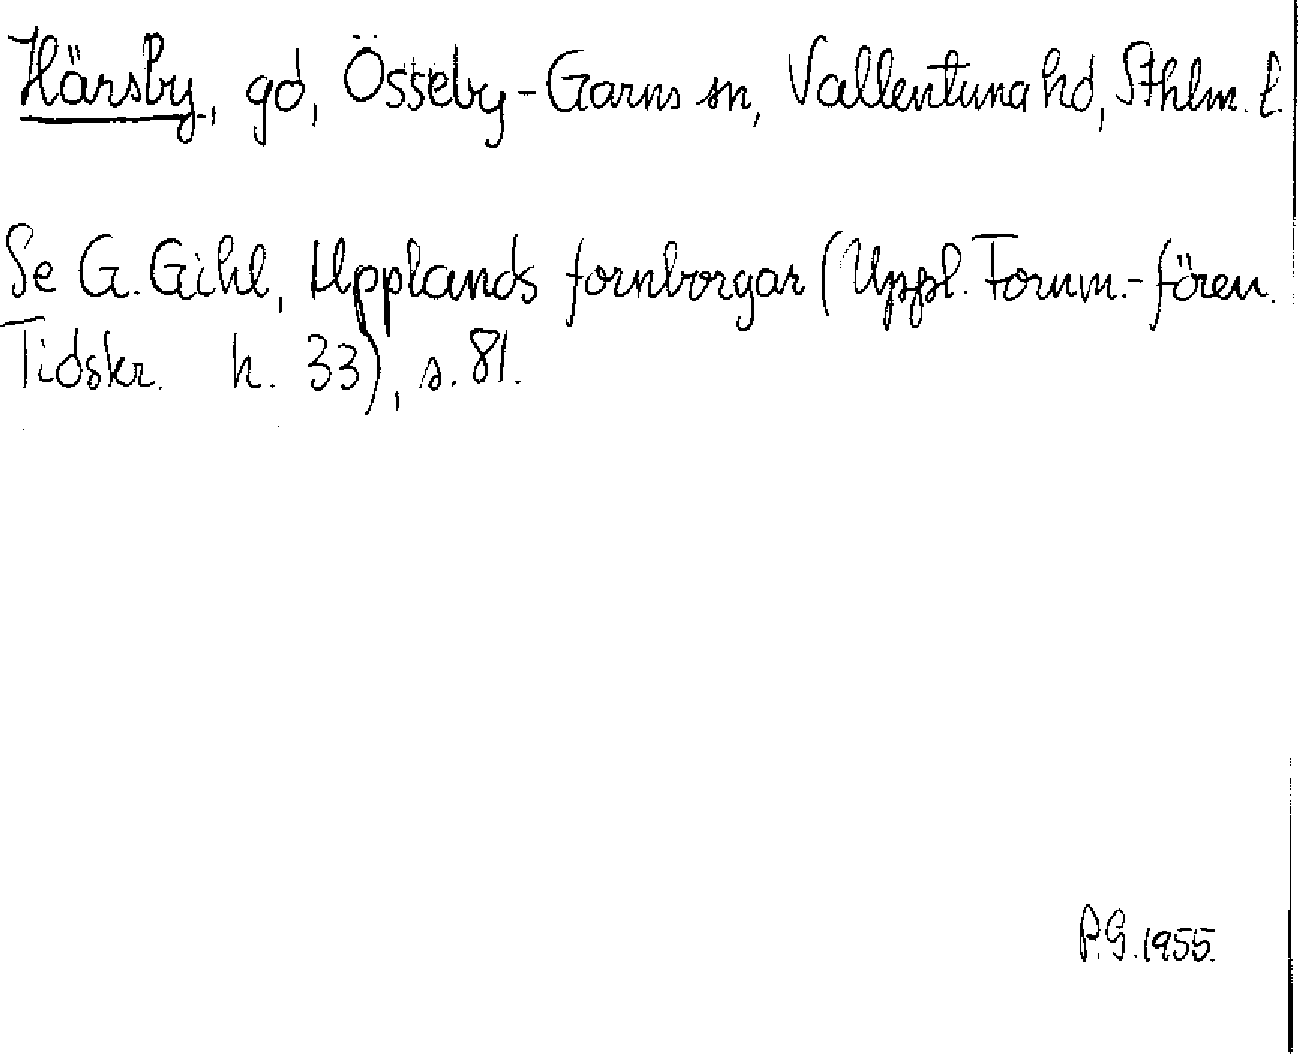 Härsby, gd, Össeby-Garns sn, Vallentuna hd, Sthlm. l.
Se G. Gihl, Upplands fornborgar (Uppl. Fornm.-fören.
Tidskr. h. 33), s. 81.
P.G. 1955.